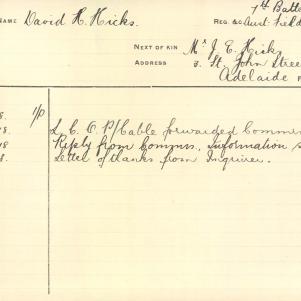 7th Batt
NAME David H. Hicks. REG &c Aust. Field
NEXT OF KIN Mr J. E. Hicks
ADDRESS 3. St. John Stree
Adelaide
8. 1/p L. C. O. P/Cable forwarded Commr
18 Reply from Commrs. Information s
8. Letter of thanks from Inquirer.